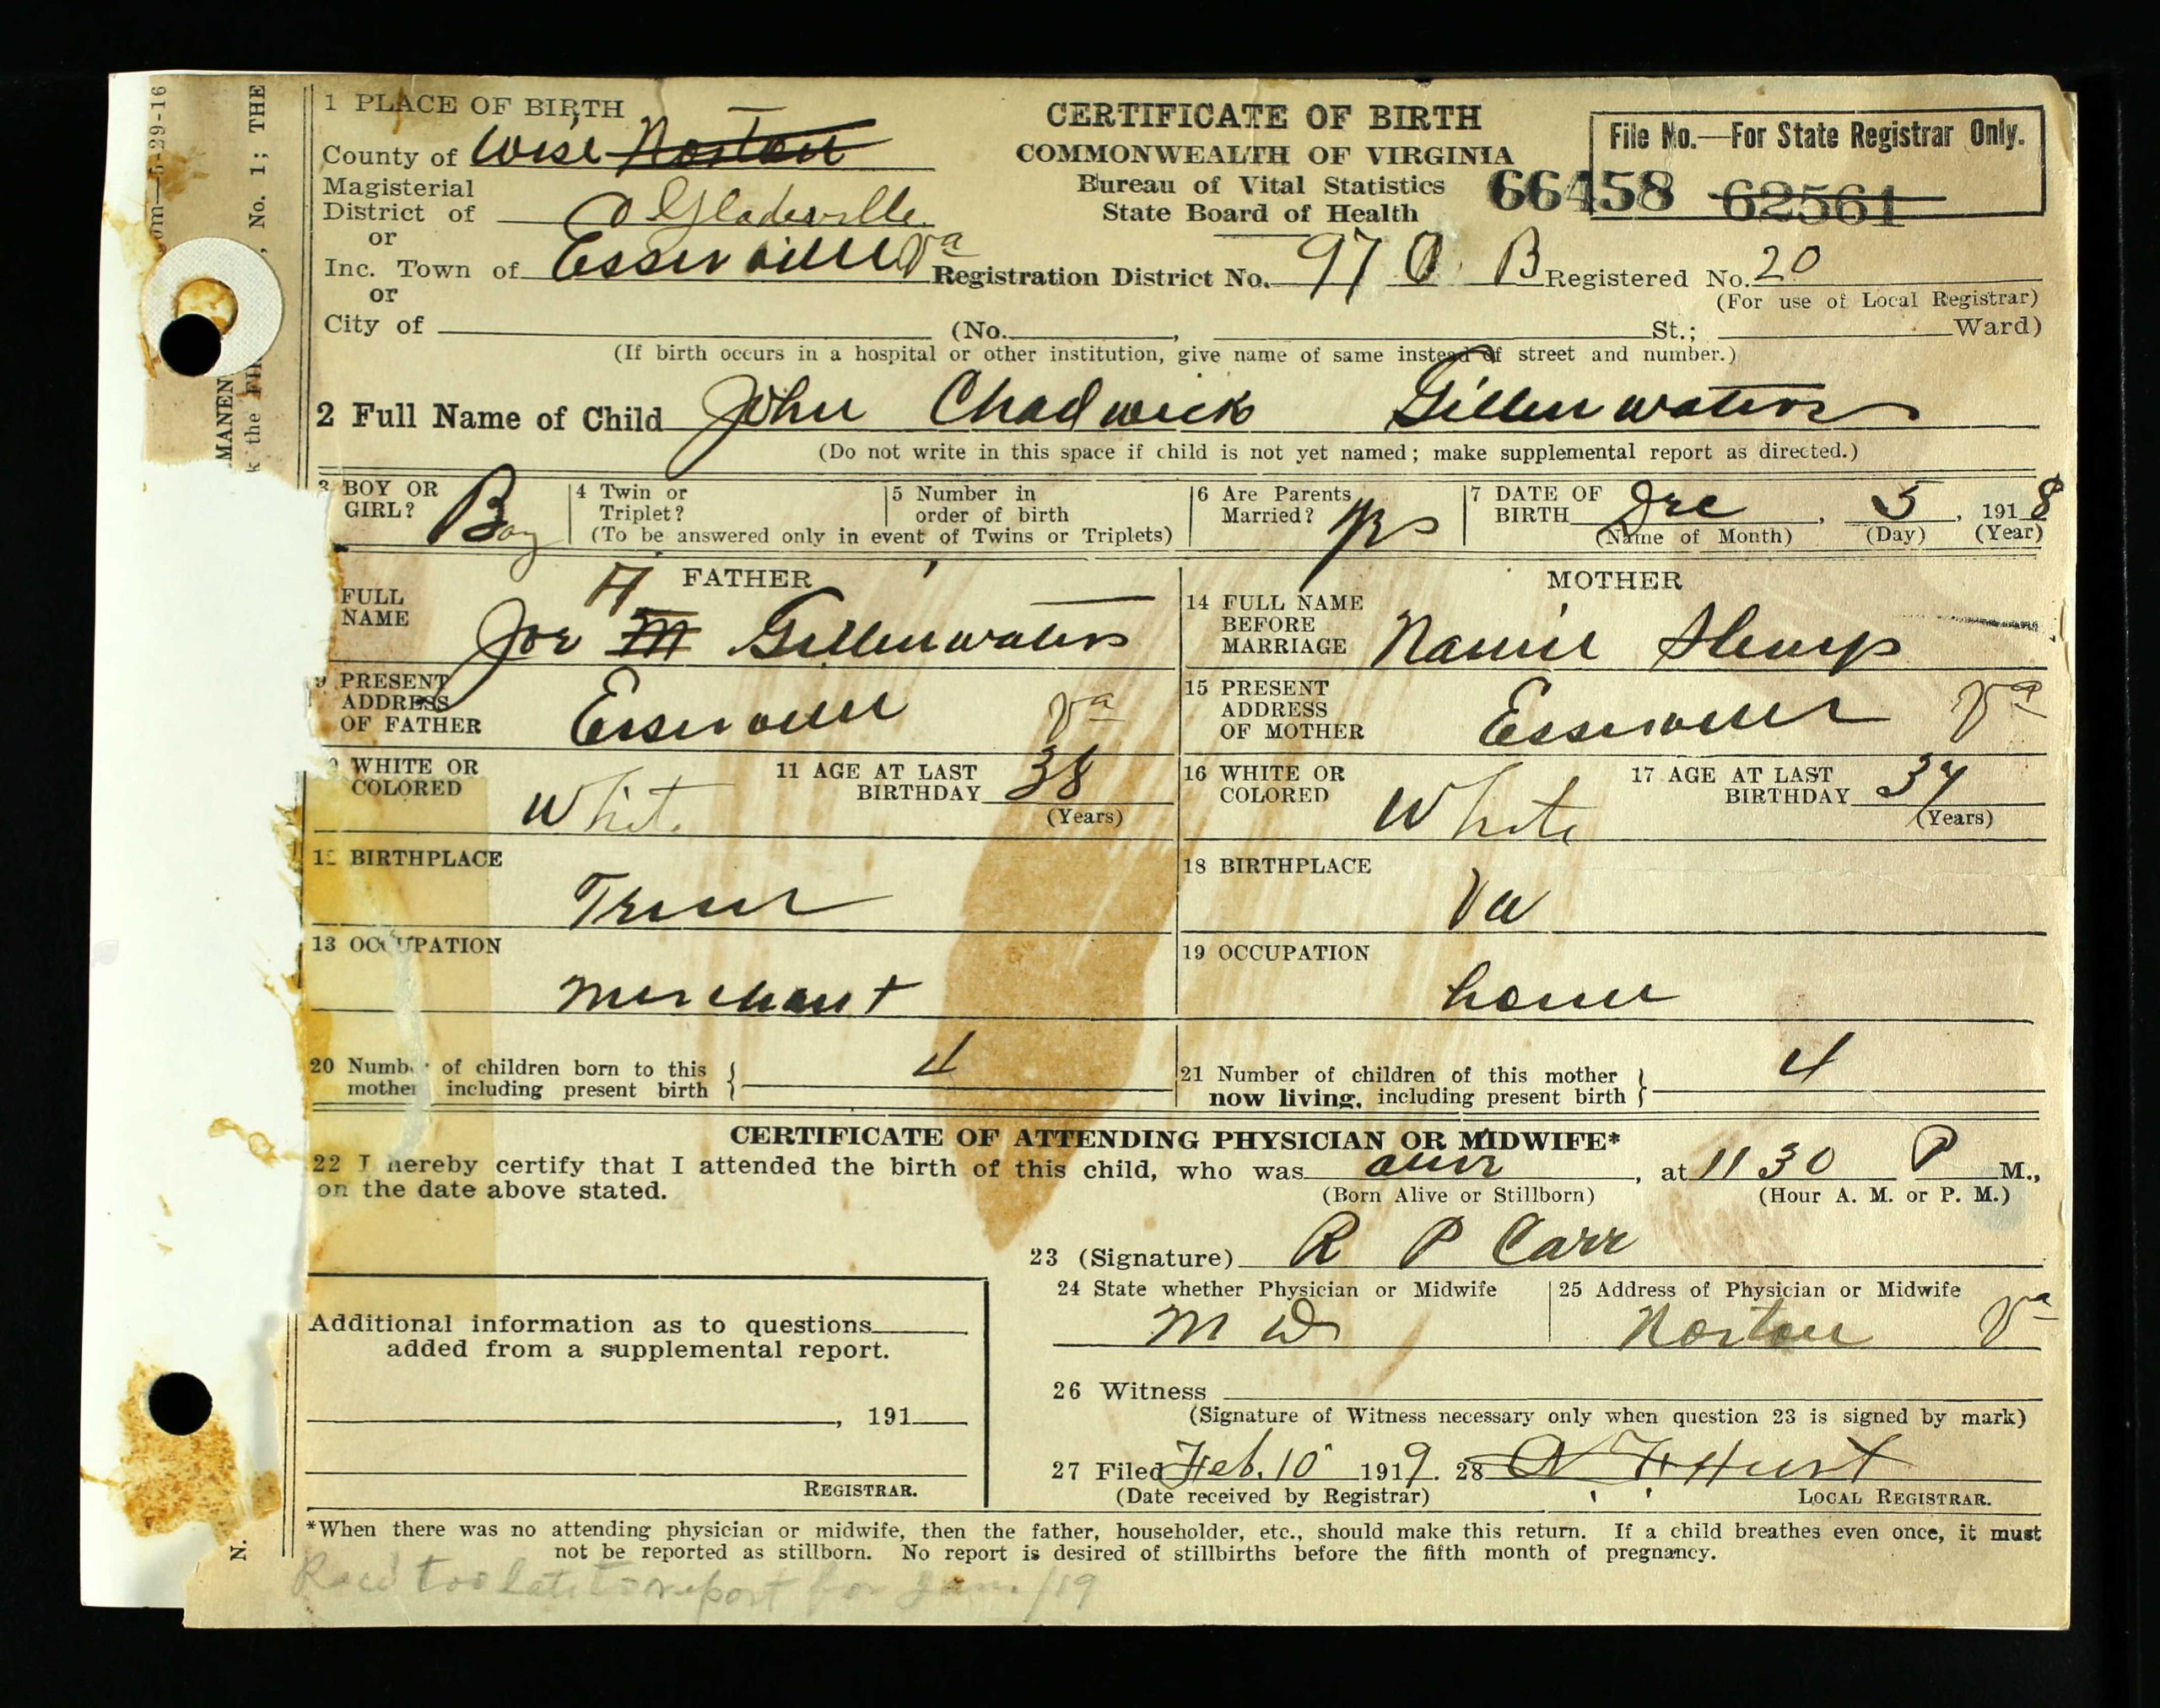 1 PLACE OF BIRTH
County of Wise Norton
Magisterial
District of Gladeville
or
Inc. Town of Esserville Va
or
City of (No. , St.; Ward)
(If birth occurs in a hospital or other institution, give name of same instead of street and number.)
CERTIFICATE OF BIRTH
COMMONWEALTH OF VIRGINIA
Bureau of Vital Statistics
State Board of Health
File No.—For State Registrar Only.
66458 62561
Registration District No. 970 B Registered No. 20
(For use of Local Registrar)
2 Full Name of Child John Chadwick Gillenwaters
(Do not write in this space if child is not yet named; make supplemental report as directed.)
3 BOY OR GIRL? Boy
4 Twin or Triplet?
5 Number in order of birth
(To be answered only in event of Twins or Triplets)
6 Are Parents Married? yes
7 DATE OF BIRTH Dec , 5 , 1918
(Name of Month) (Day) (Year)
FATHER
FULL NAME Joe M H Gillenwaters
9 PRESENT ADDRESS OF FATHER Esserville Va
WHITE OR COLORED White
11 AGE AT LAST BIRTHDAY 38
(Years)
12 BIRTHPLACE Tenn
13 OCCUPATION
merchant
20 Number of children born to this mother including present birth 4
MOTHER
14 FULL NAME BEFORE MARRIAGE Nannie Slemp
15 PRESENT ADDRESS OF MOTHER Esserville Va
16 WHITE OR COLORED White
17 AGE AT LAST BIRTHDAY 34
(Years)
18 BIRTHPLACE
Va
19 OCCUPATION
home
21 Number of children of this mother now living, including present birth 4
CERTIFICATE OF ATTENDING PHYSICIAN OR MIDWIFE*
22 I hereby certify that I attended the birth of this child, who was alive , at 11 30 P M.,
on the date above stated. (Born Alive or Stillborn) (Hour A. M. or P. M.)
23 (Signature) R P Carr
24 State whether Physician or Midwife
M D
25 Address of Physician or Midwife
Norton Va
Additional information as to questions
added from a supplemental report.
, 191
REGISTRAR.
26 Witness
(Signature of Witness necessary only when question 23 is signed by mark)
27 Filed Feb. 10 1919. 28 Hurst
(Date received by Registrar) LOCAL REGISTRAR.
*When there was no attending physician or midwife, then the father, householder, etc., should make this return. If a child breathes even once, it must
not be reported as stillborn. No report is desired of stillbirths before the fifth month of pregnancy.
Recd too late to report for Jan. /19
5-29-16
, No. 1; THE
MANEN
k the FI
N.